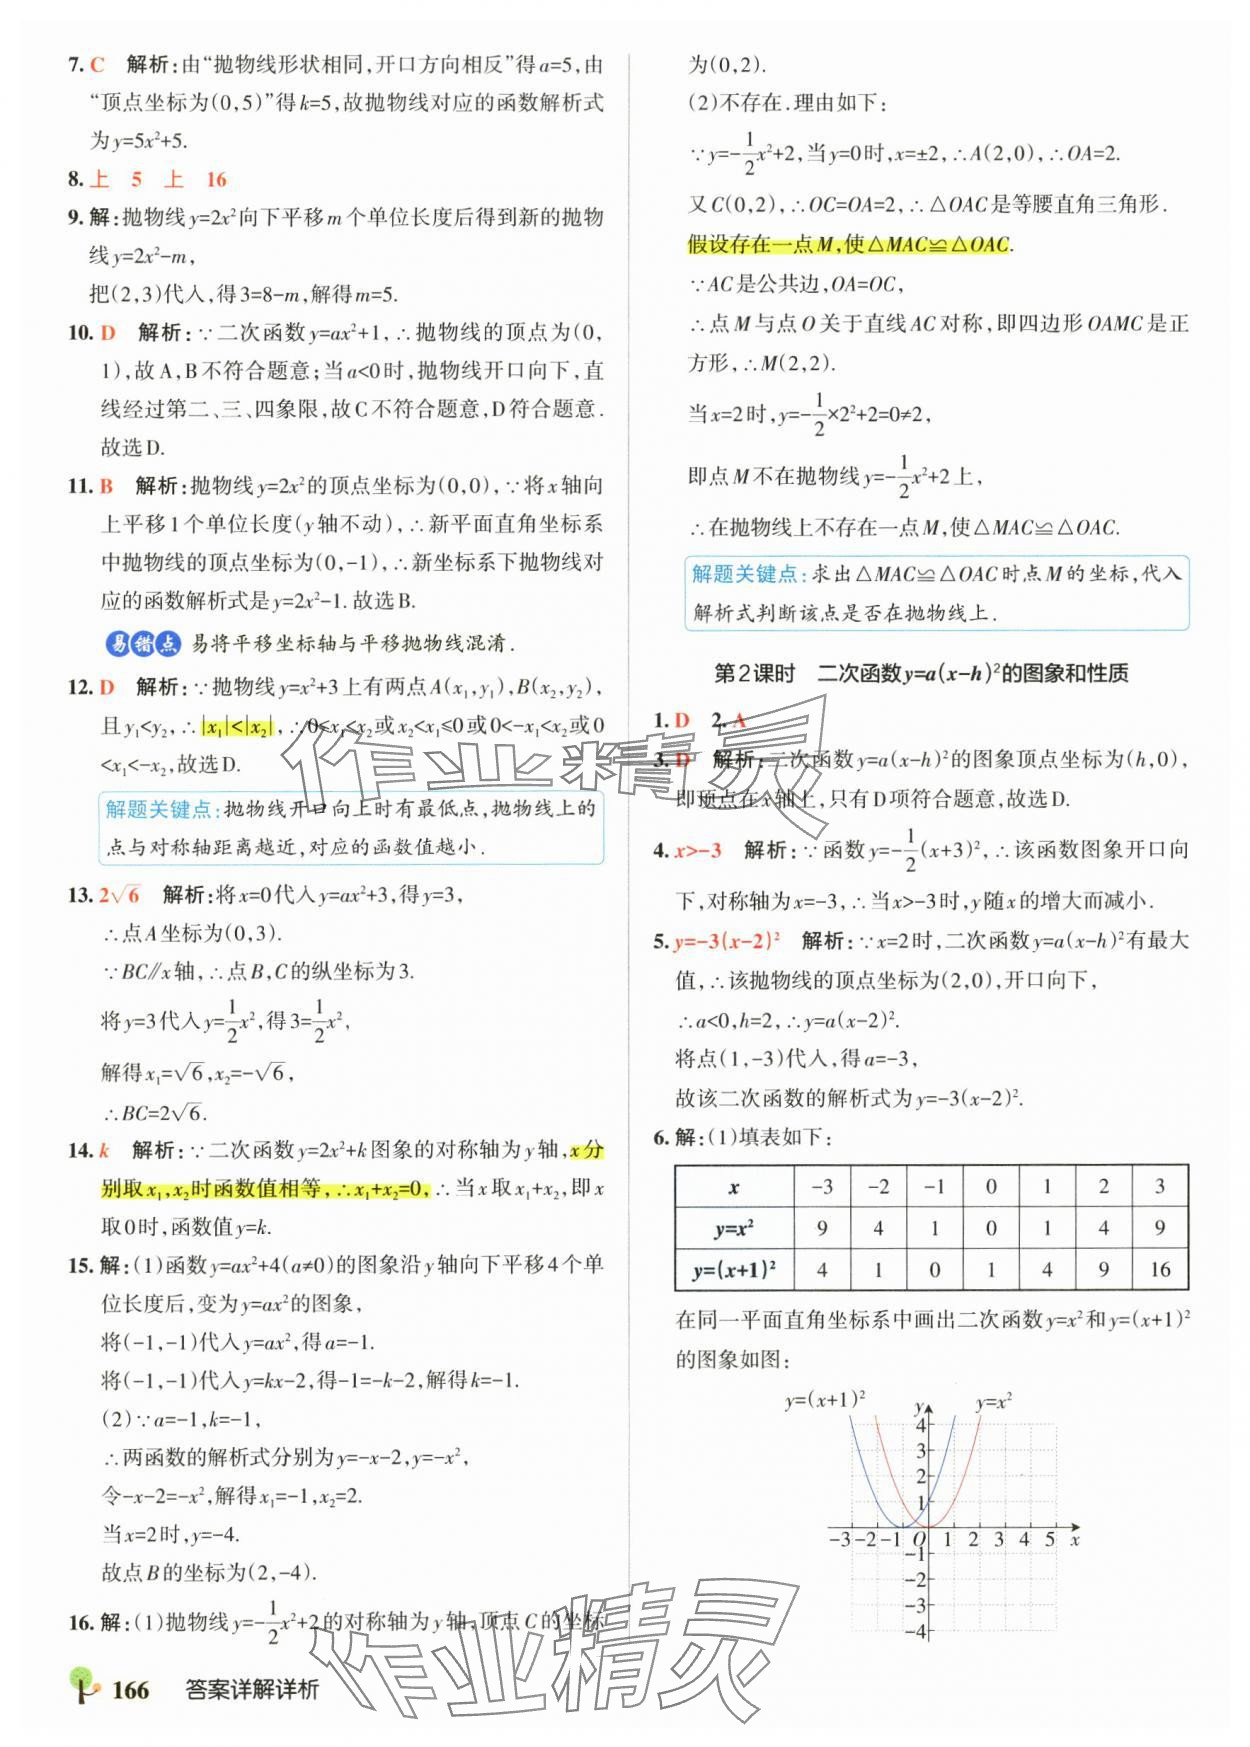 7. C 解析:由“抛物线形状相同,开口方向相反”得a=5,由
“顶点坐标为(0,5)”得k=5,故抛物线对应的函数解析式
为y=5x²+5.
8. 上 5 上 16
9. 解:抛物线y=2x²向下平移m个单位长度后得到新的抛物
线y=2x²-m,
把(2,3)代入,得3=8-m,解得m=5.
10. D 解析:∵二次函数y=ax²+1,∴抛物线的顶点为(0,
1),故A,B不符合题意;当a<0时,抛物线开口向下,直
线经过第二、三、四象限,故C不符合题意,D符合题意.
故选D.
11. B 解析:抛物线y=2x²的顶点坐标为(0,0),∵将x轴向
上平移1个单位长度(y轴不动),∴新平面直角坐标系
中抛物线的顶点坐标为(0,-1),∴新坐标系下抛物线对
应的函数解析式是y=2x²-1.故选B.
易错点 易将平移坐标轴与平移抛物线混淆.
12. D 解析:∵抛物线y=x²+3上有两点A(x₁,y₁),B(x₂,y₂),
且y₁<y₂,∴|x₁|<|x₂|,∴0<x₁<x₂或x₂<x₁≤0或0<-x₁<x₂或0
<x₁<-x₂,故选D.
解题关键点:抛物线开口向上时有最低点,抛物线上的
点与对称轴距离越近,对应的函数值越小.
13. 2√6 解析:将x=0代入y=ax²+3,得y=3,
∴点A坐标为(0,3).
∵BC∥x轴,∴点B,C的纵坐标为3.
将y=3代入y=1/2x²,得3=1/2x²,
解得x₁=√6,x₂=-√6,
∴BC=2√6.
14. k 解析:∵二次函数y=2x²+k图象的对称轴为y轴,x分
别取x₁,x₂时函数值相等,∴x₁+x₂=0,∴当x取x₁+x₂,即x
取0时,函数值y=k.
15. 解:(1)函数y=ax²+4(a≠0)的图象沿y轴向下平移4个单
位长度后,变为y=ax²的图象,
将(-1,-1)代入y=ax²,得a=-1.
将(-1,-1)代入y=kx-2,得-1=-k-2,解得k=-1.
(2)∵a=-1,k=-1,
∴两函数的解析式分别为y=-x-2,y=-x²,
令-x-2=-x²,解得x₁=-1,x₂=2.
当x=2时,y=-4.
故点B的坐标为(2,-4).
16. 解:(1)抛物线y=-1/2x²+2的对称轴为y轴,顶点C的坐标
166 答案详解详析
为(0,2).
(2)不存在.理由如下:
∵y=-1/2x²+2,当y=0时,x=±2,∴A(2,0),∴OA=2.
又C(0,2),∴OC=OA=2,∴△OAC是等腰直角三角形.
假设存在一点M,使△MAC≌△OAC.
∵AC是公共边,OA=OC,
∴点M与点O关于直线AC对称,即四边形OAMC是正
方形,∴M(2,2).
当x=2时,y=-1/2×2²+2=0≠2,
即点M不在抛物线y=-1/2x²+2上,
∴在抛物线上不存在一点M,使△MAC≌△OAC.
解题关键点:求出△MAC≌△OAC时点M的坐标,代入
解析式判断该点是否在抛物线上.
第2课时 二次函数y=a(x-h)²的图象和性质
1. D 2. A
3. D 解析:二次函数y=a(x-h)²的图象顶点坐标为(h,0),
即顶点在x轴上,只有D项符合题意,故选D.
4. x>-3 解析:∵函数y=-1/2(x+3)²,∴该函数图象开口向
下,对称轴为x=-3,∴当x>-3时,y随x的增大而减小.
5. y=-3(x-2)² 解析:∵x=2时,二次函数y=a(x-h)²有最大
值,∴该抛物线的顶点坐标为(2,0),开口向下,
∴a<0,h=2,∴y=a(x-2)².
将点(1,-3)代入,得a=-3,
故该二次函数的解析式为y=-3(x-2)².
6. 解:(1)填表如下:
x -3 -2 -1 0 1 2 3
y=x² 9 4 1 0 1 4 9
y=(x+1)² 4 1 0 1 4 9 16
在同一平面直角坐标系中画出二次函数y=x²和y=(x+1)²
的图象如图:
y=(x+1)² y y=x²
4
3
2
1
-3 -2 -1 O 1 2 3 4 5 x
-1
-2
-3
-4
作业精灵
作业精灵